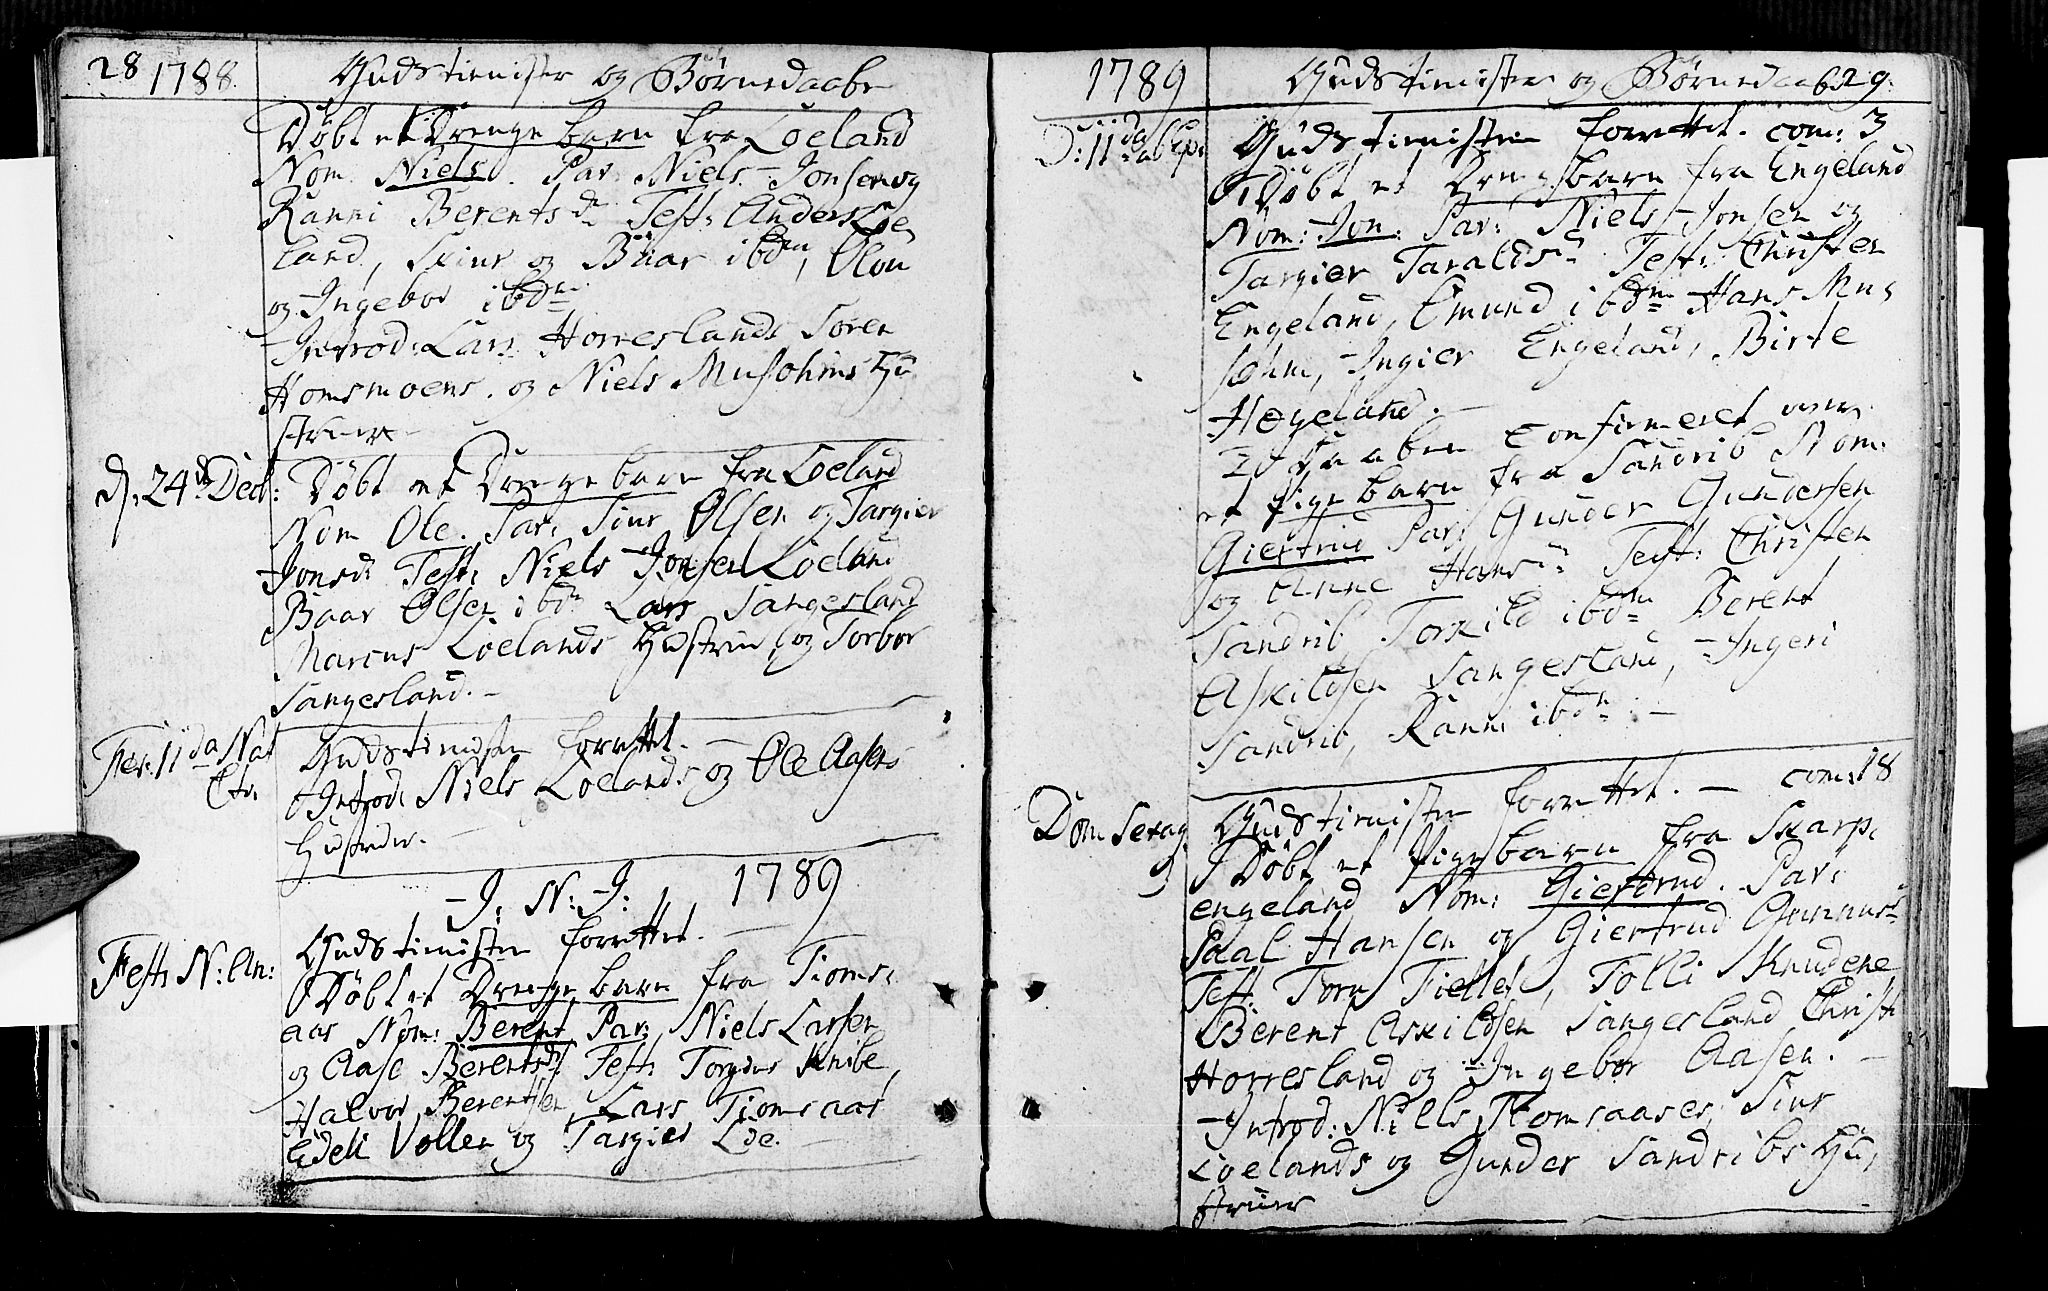 28 1788. Gudstienister og Børnedaabe
Døbt et Drenge barn fra Loeland
Nom Niels. Par Niels Jonsen og
Ranni Berentsd. Test: Anders Loe
land, Siur og Baar ibdm, Olou
og Ingebor ibdm
Introd: Lars Horreslands Søren
Homsmoens. og Niels Musohms Hu
struer
d. 24de Decb: Døbt et Drenge barn fra Loeland
Nom Ole. Par: Siur Olsen og Targier
Jonsd: Test: Niels Jonsen Loeland
Baar Olsen ibdm Lars Sangesland
Marcus Loelands Hustrue, og Torbor
Sangesland.-
Fer: 11da Nat Gudstienisten forrettet. -
Chr. Introd: Niels Loelands og Ole Aasens
Hustruer. -
J: N: J: 1789
Gudstienisten forrettet. -
Fest: N: An: Døbt et Drenge barn fra Tioms:
aas Nom: Berent Par: Niels Larsen
og Aase Berentsd: Test: Torgius Knibe,
Halvor Berentsen, Lars Tiomsaas
Edeli Vollen og Targier Loe. -
1789 Gudstienister og Børnedaab 29.
D: 11da p. Ep: Gudstienisten forrettet. com: 3
Døbt et Drengebarn fra Engeland
Nom: Jon: Par: Niels Jonsen og
Targier Taraldsd: Test: Christen
Engeland, Emund ibdm Hans Mus
sohm, Ingier Engeland, Birte
Høyeland. -
I Daaben Confirmeret
et Pige barn fra Sandrib Nom:
Giertrud Par: Gunder Gundersen
og Anne Hansd: Test: Christen
Sandrib, Torkild ibdm Berent
Askildsen Sangesland, Ingeri
Sandrib, Ranni ibdm. -
Dom Sexag. Gudstienisten forrettet. - com: 18
Døbt et Pige barn fra Skarp:
engeland Nom: Giertrud. Par:
Paal Hansen og Giertrud Gunnusd:
Test: Torn Fielles, Tolli Knudene
Berent Askildsen Sangesland Christi
Horresland og Ingebor Aasen. -
Introd: Niels Tiomsaases, Siur
Loelands og Gunder Sandribs Hu,
struer